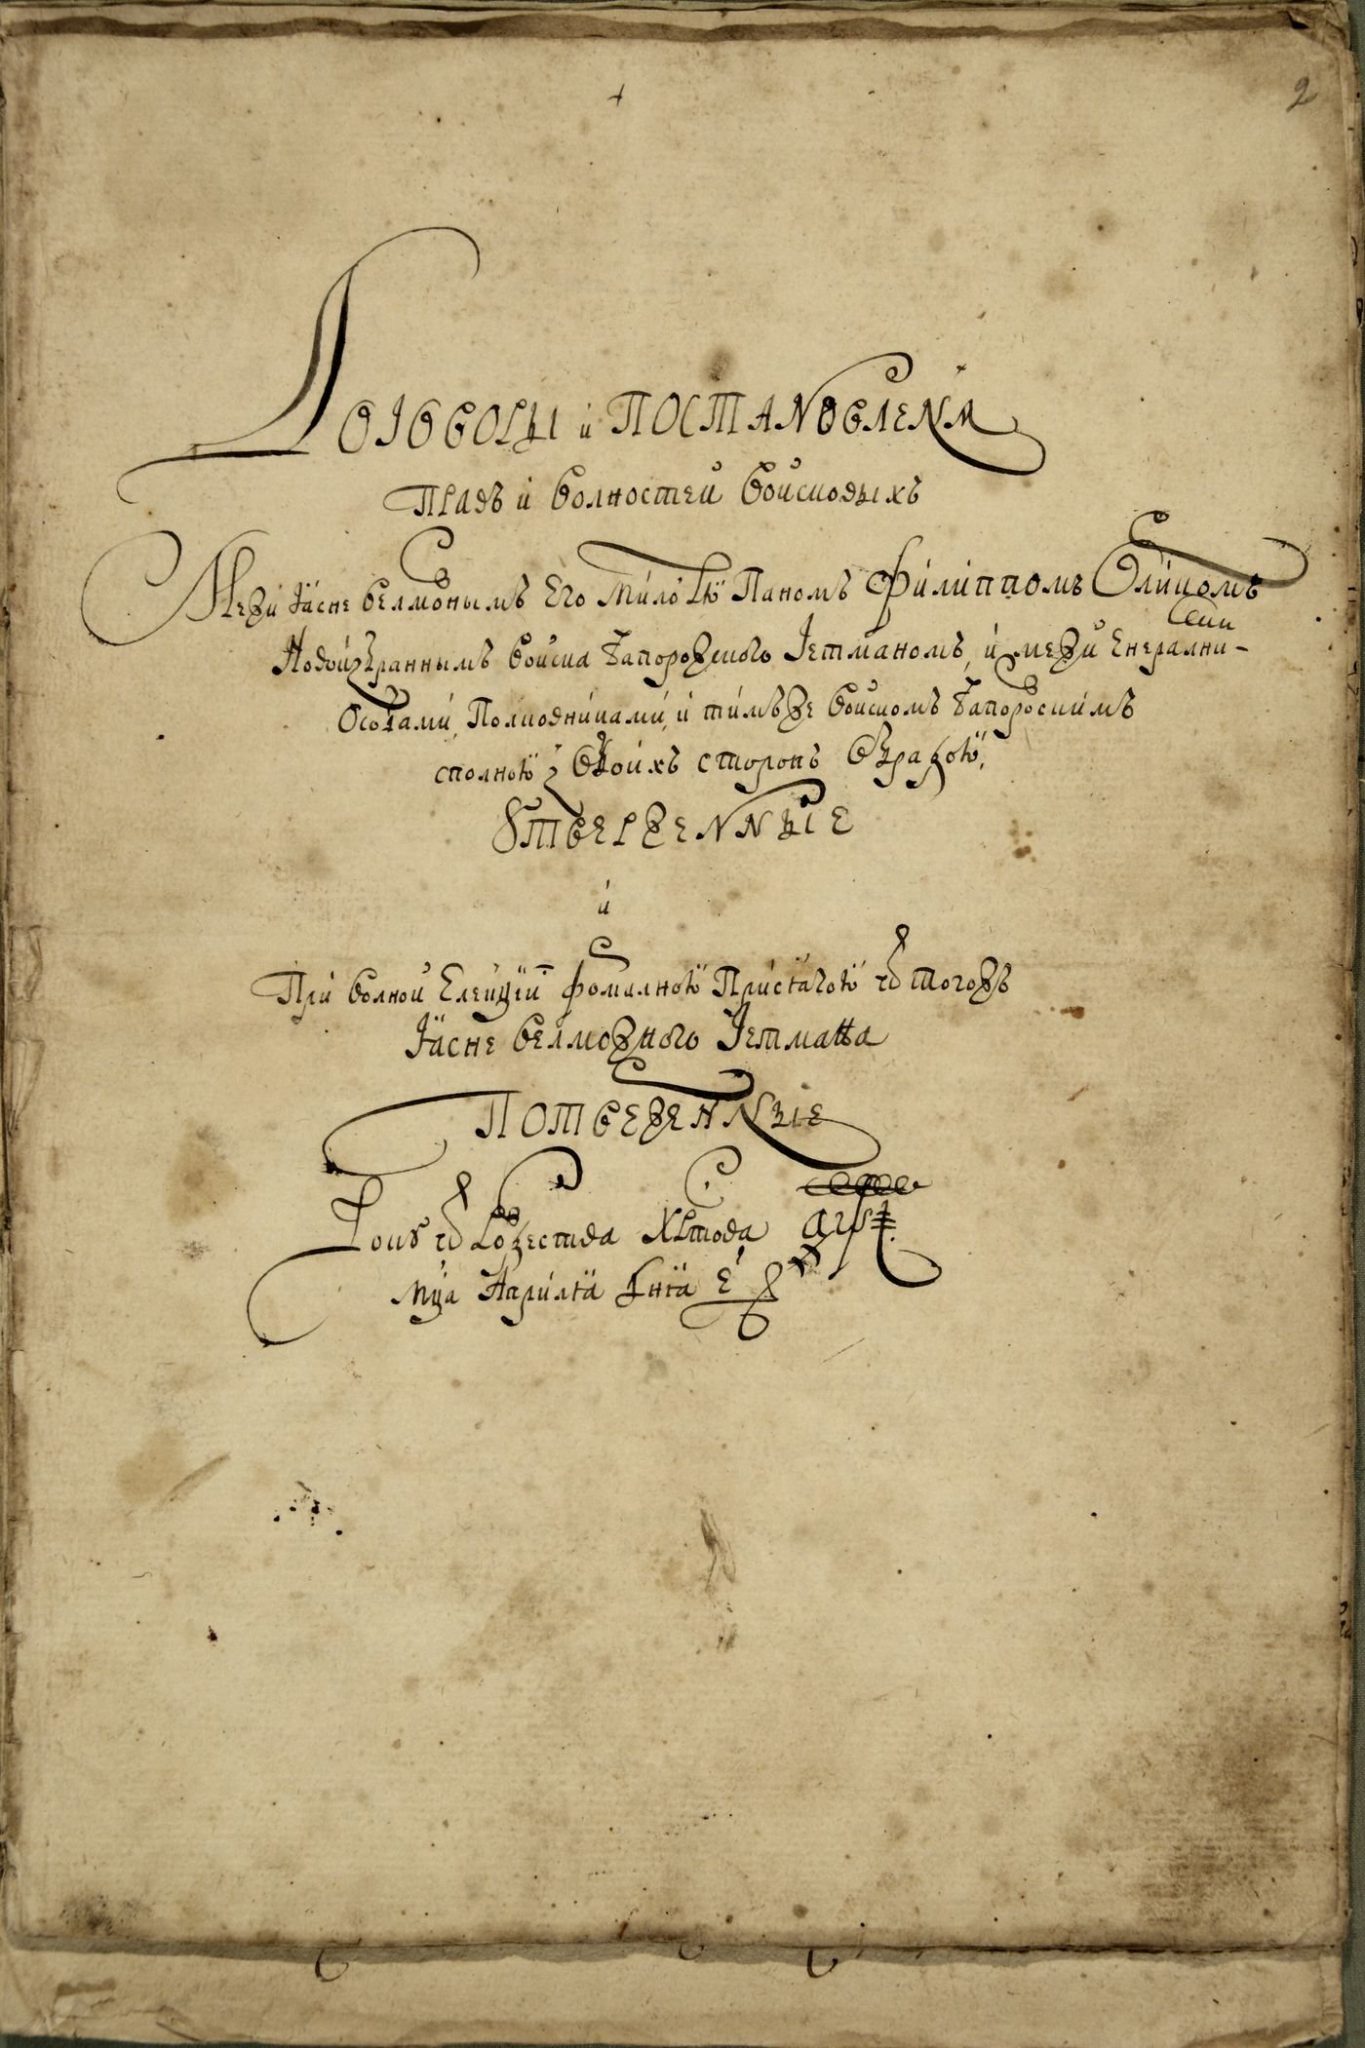 2
Договоры и Постановленѧ
Правъ и волностей войсковыхъ
Межи Ясне велможнымъ Его милостю Паномъ Филиппомъ Орликомъ
Новоизбраннымъ войска Запорожского Гетманомъ, и межи Енералними
Особами, Полковниками, и тимъже войскомъ Запорозскимъ
сполною з обоихъ сторонъ обрадою,
Ꙋтверженные
и
При волной Елекціи формалною Присягою ѿ тогожъ
Ясне велможного Гетмана
Потверженные
Рокꙋ ѿ Рожества Христова ҂аѱі
мца Априля дня е